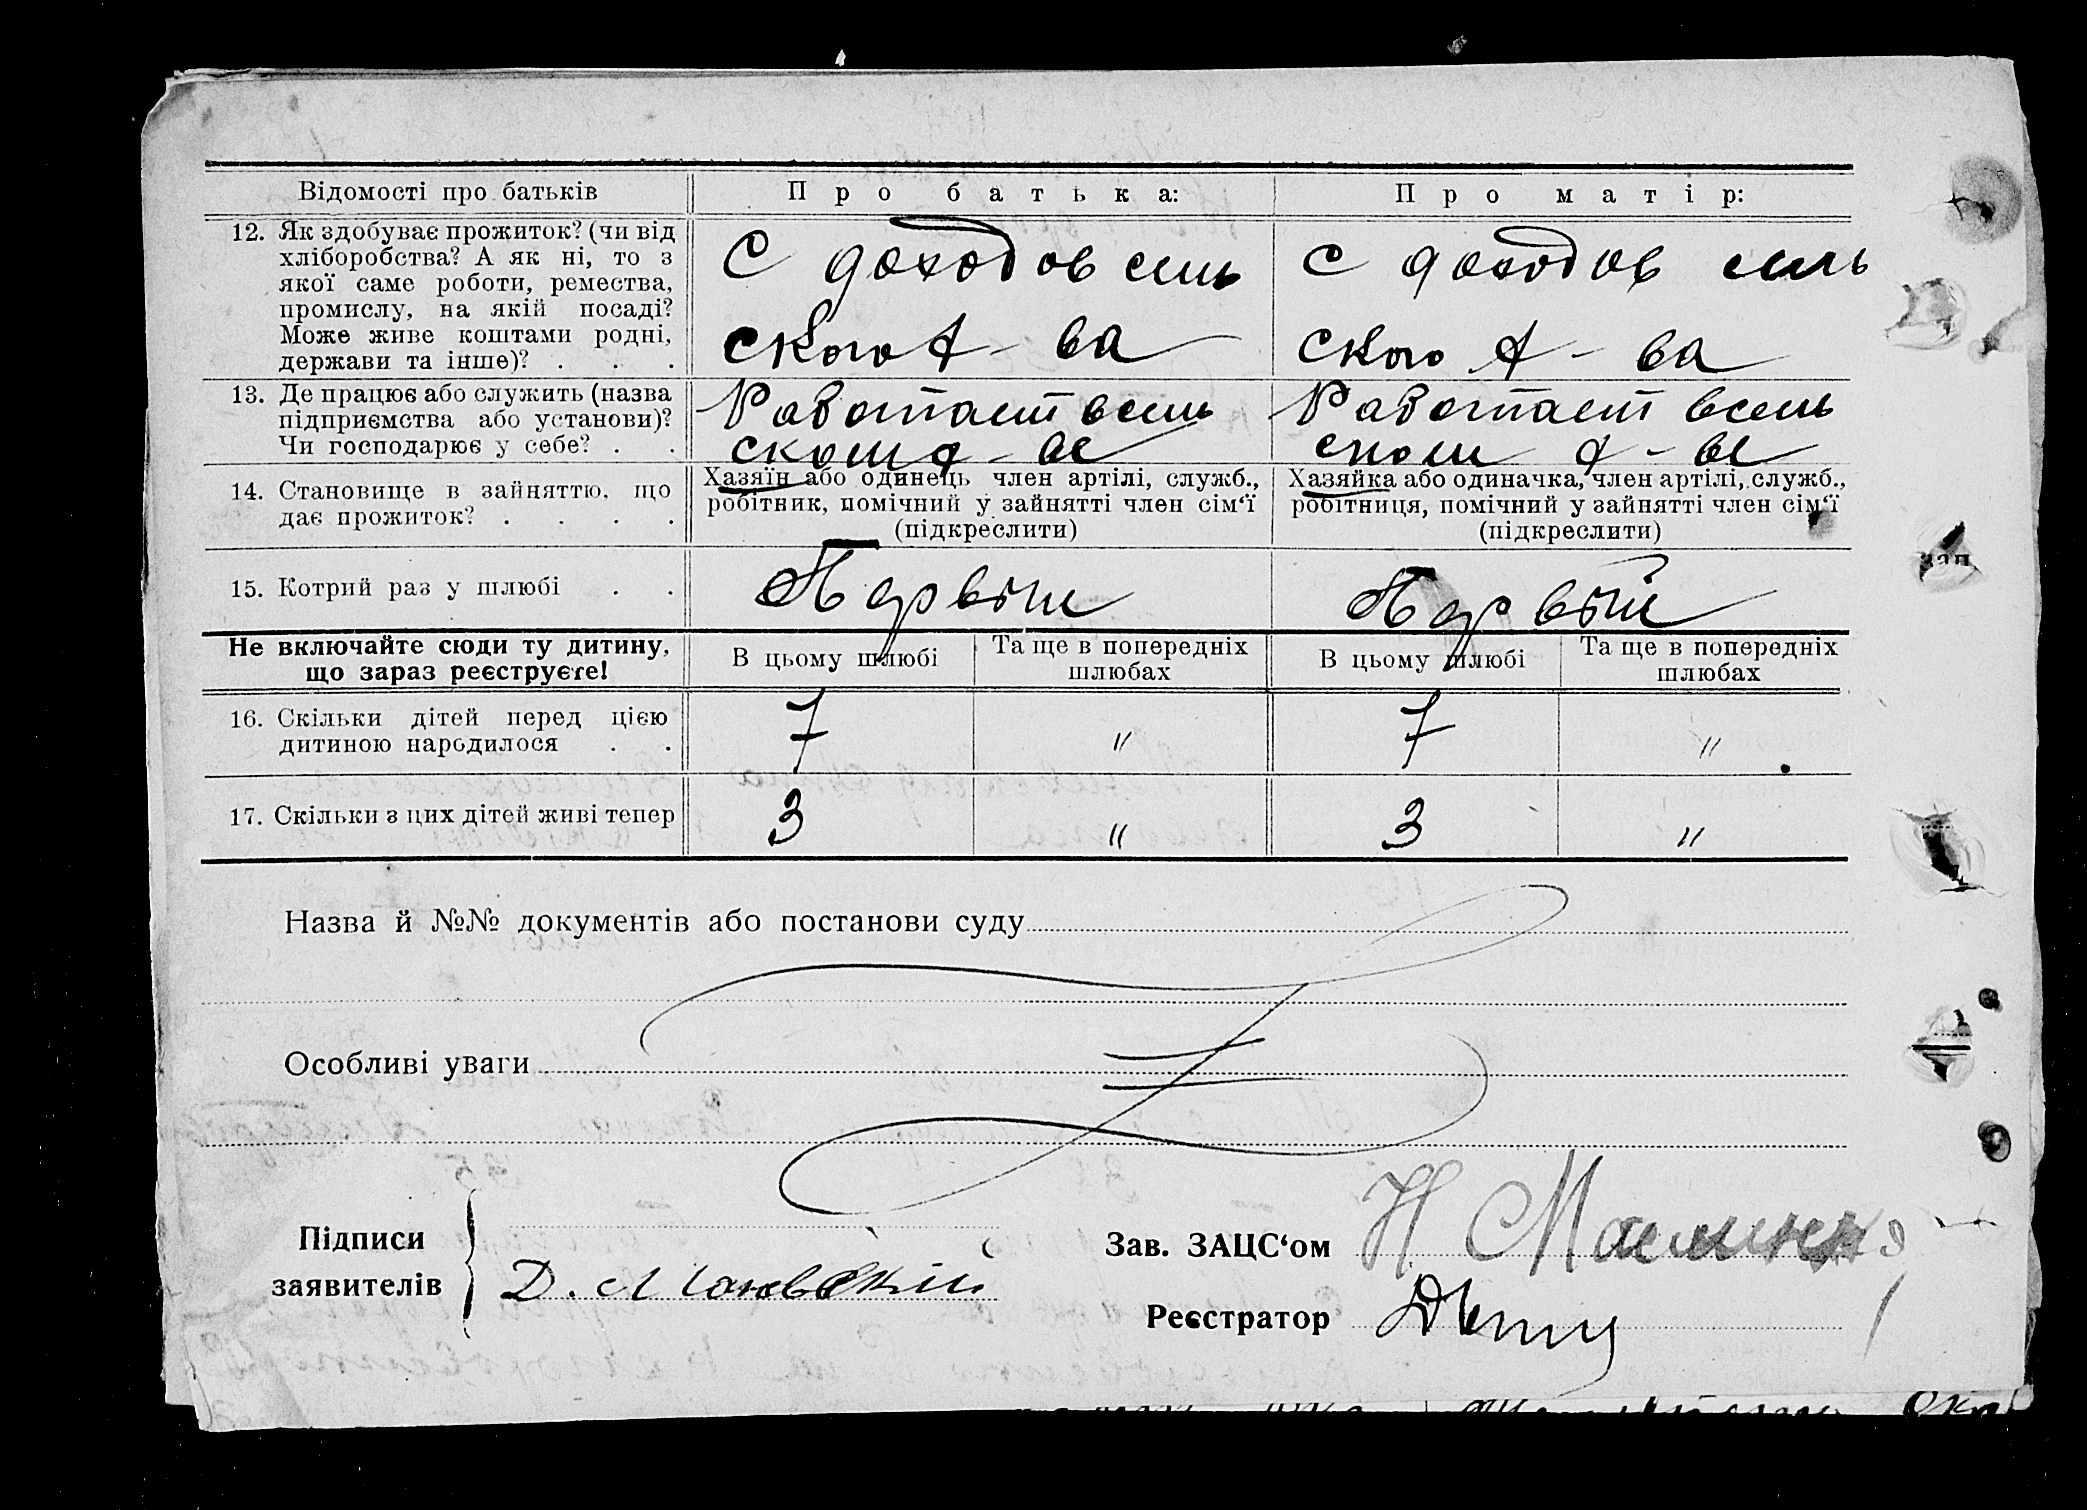 Відомості про батьків
Про батька:
Про матір:
12. Як здобуває прожиток? (чи від
хліборобства? А як ні, то з
якої саме роботи, ремества,
промислу, на якій посаді?
Може живе коштами родні,
держави та інше)? . . .
С доходов сель
ского х-ва
С доходов сель
ского х-ва
13. Де працює або служить (назва
підприємства або установи)?
Чи господарює у себе? . .
Работает в сель
ском х-ве
Работает в сель
ском х-ве
14. Становище в зайняттю, що
дає прожиток? . . . .
Хазяїн або одинець член артілі, служб.,
робітник, помічний у зайнятті член сім‘ї
(підкреслити)
Хазяйка або одиначка, член артілі, служб.,
робітниця, помічний у зайнятті член сім‘ї
(підкреслити)
15. Котрий раз у шлюбі . .
Первый
Первый
Не включайте сюди ту дитину,
що зараз реєструєте!
В цьому шлюбі
Та ще в попередніх
шлюбах
В цьому шлюбі
Та ще в попередніх
шлюбах
16. Скільки дітей перед цією
дитиною народилося . .
7
"
7
"
17. Скільки з цих дітей живі тепер
3
"
3
"
Назва й №№ документів або постанови суду
Особливі уваги
Підписи
заявителів
Д.
Зав. ЗАЦС‘ом
Н
Реєстратор